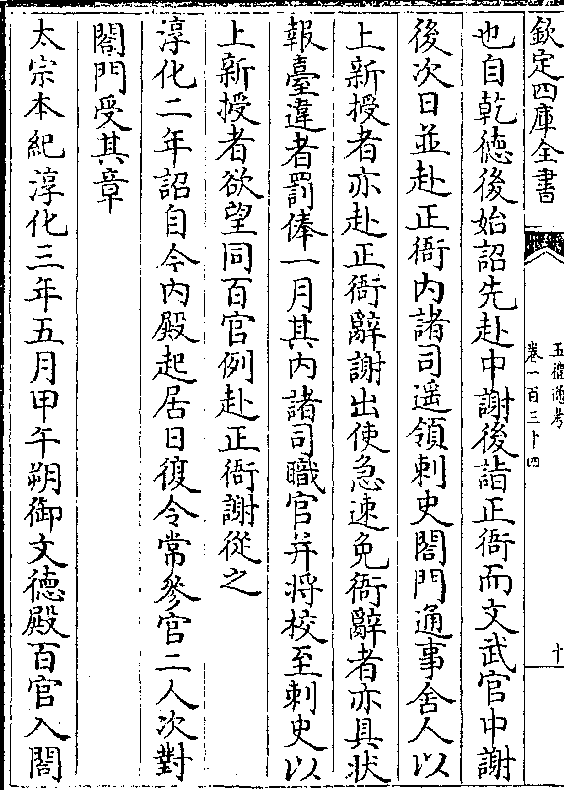 欽定四庫全書
五禮通考
卷一百三十四
十
也自乾德後始詔先赴中謝後詣正衙而文武官中謝
後次日並赴正衙内諸司遥領刺史閤門通事舍人以
上新授者亦赴正衙辭謝出使急速免衙辭者亦具狀
報臺違者罰俸一月其内諸司職官并將校至刺史以
上新授者欲望同百官例赴正衙謝從之
淳化二年詔自今内殿起居日復令常參官二人次對
閤門受其章
太宗本紀淳化三年五月甲午朔御文德殿百官入閤